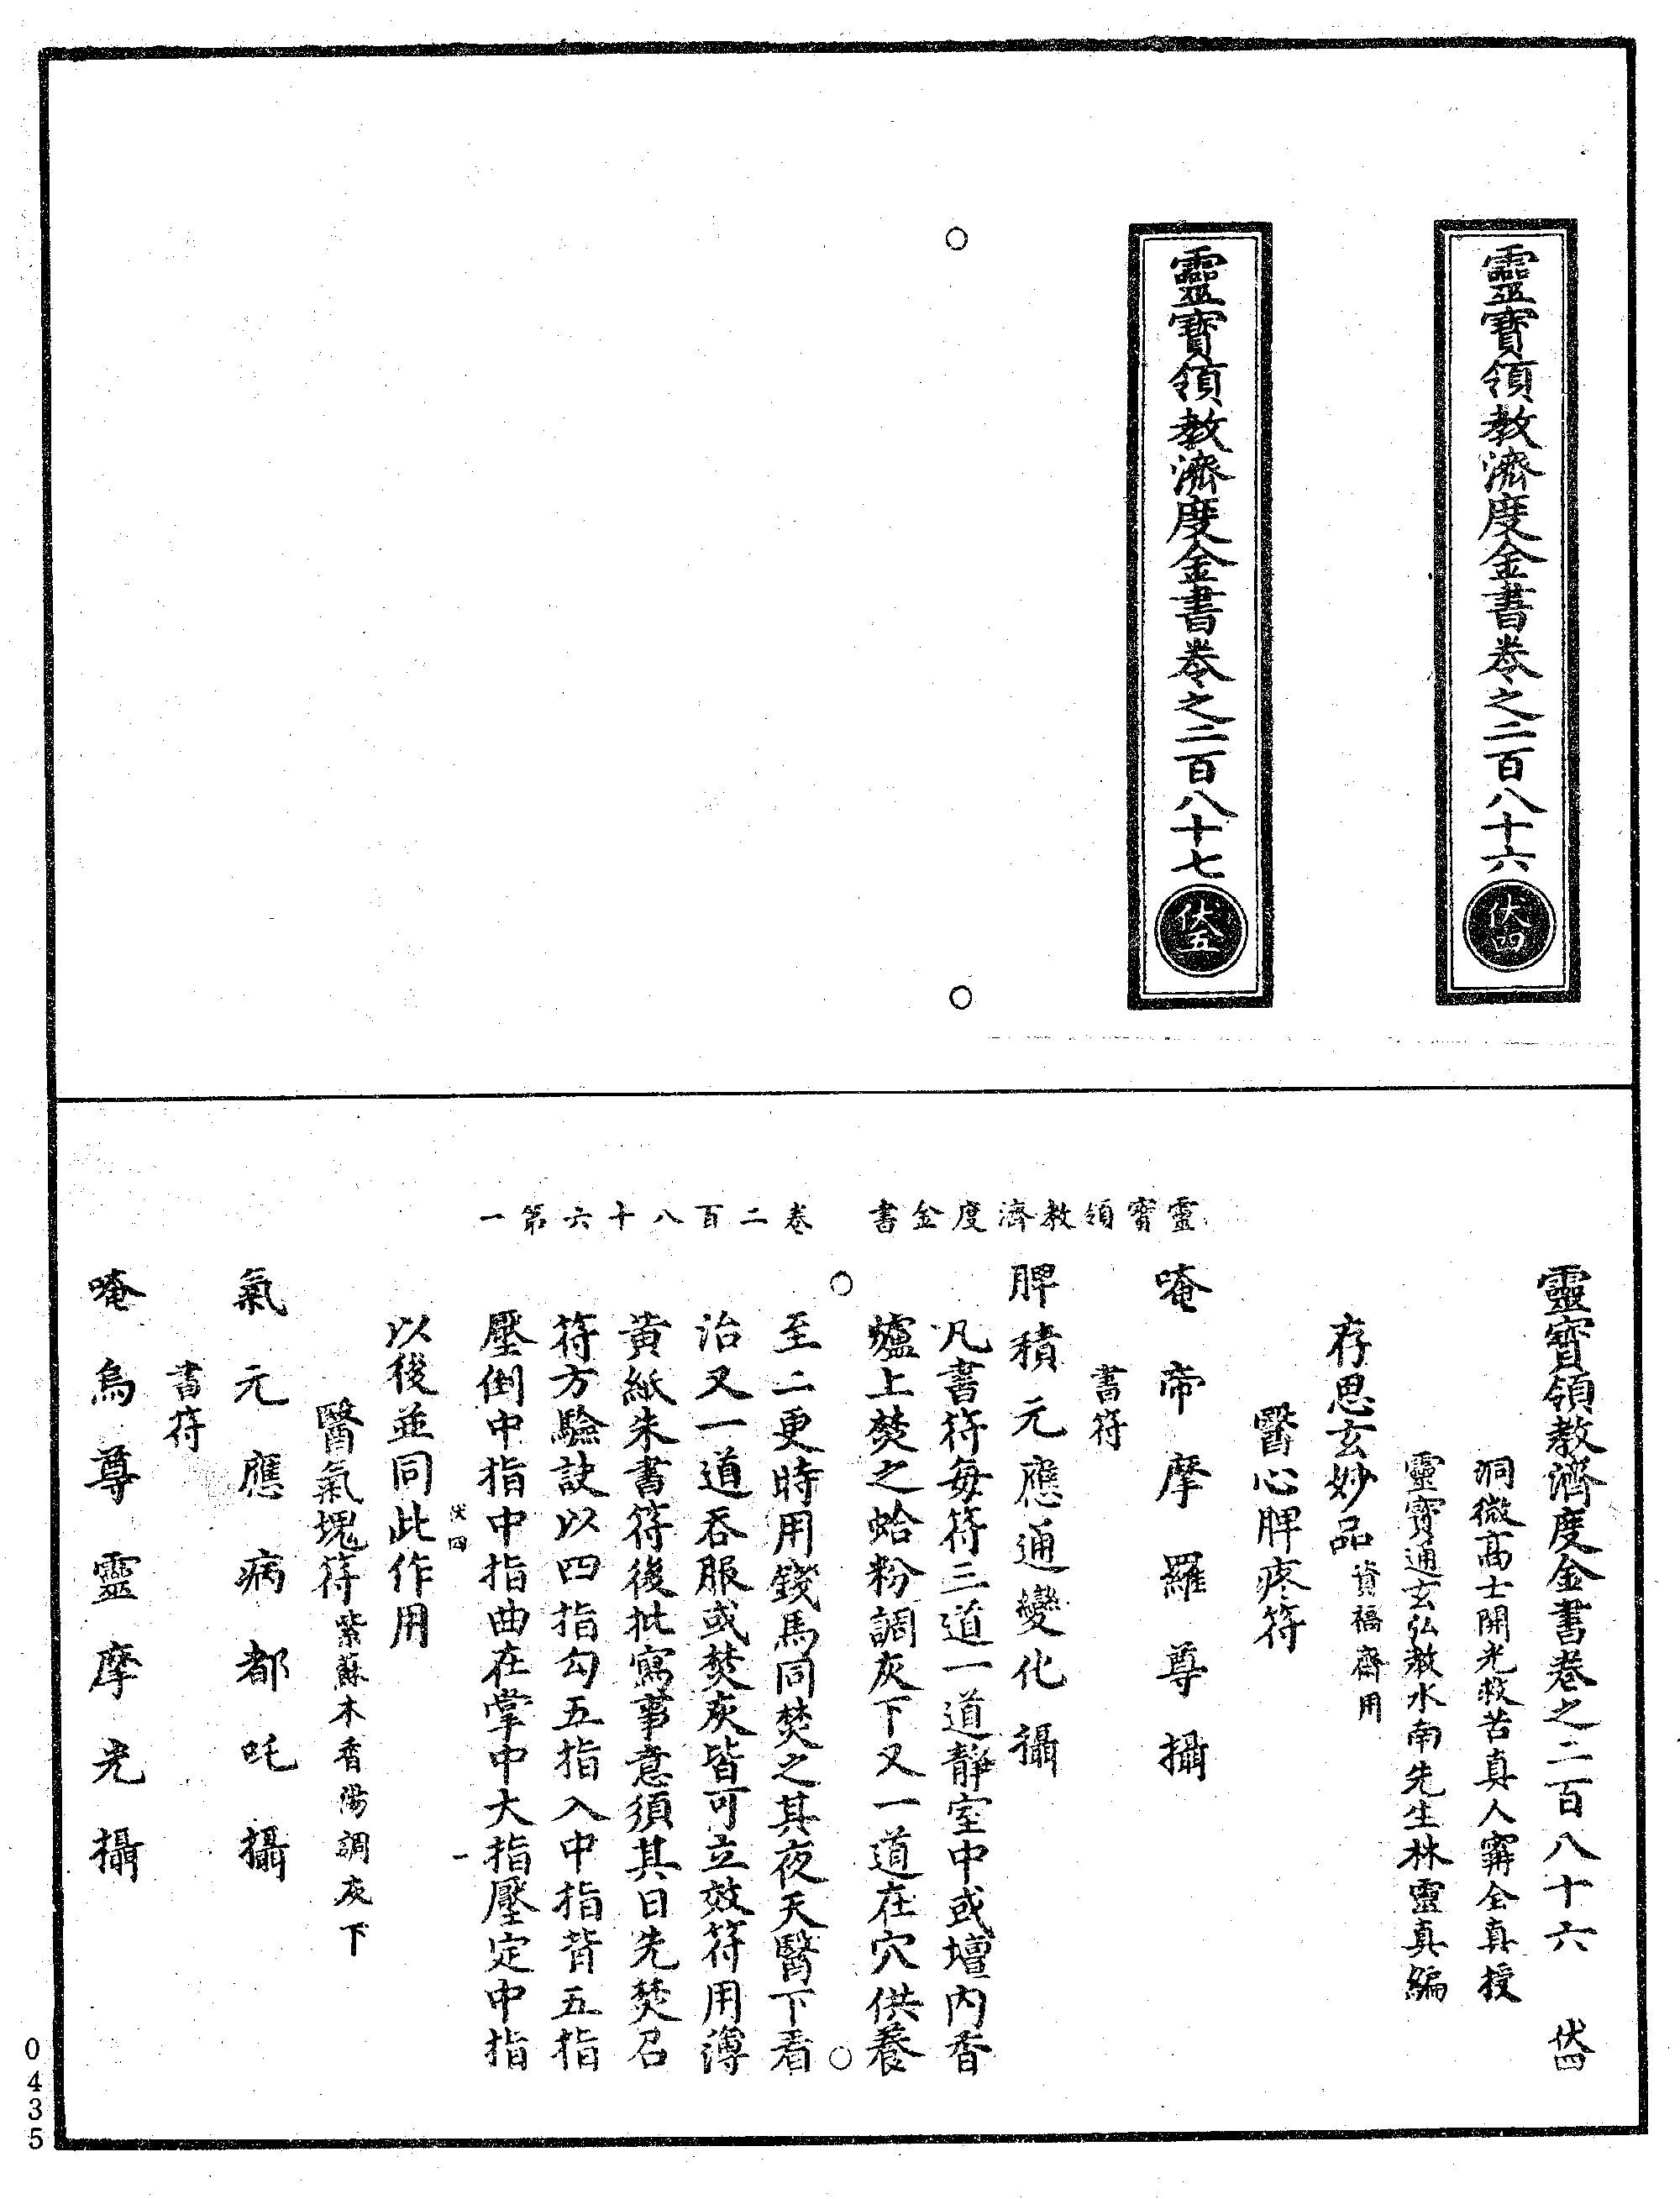 靈寶領教濟度金書卷之二百八十六
伏四
靈寶領教濟度金書卷之二百八十七
伏五
靈寶領教濟度金書卷之二百八十六 伏四
洞微高士開光救苦真人甯全真授
靈寶通玄弘教水南先生林靈真編
存思玄妙品 資福齋用
醫心脾疼符
唵帝摩羅尊攝
書符
脾積元應通變化攝
凡書符每符三道一道靜室中或壇內香
爐上焚之蛤粉調灰下又一道在穴供養
至二更時用錢馬同焚之其夜天醫下看
治又一道吞服或焚灰皆可立效符用薄
黃紙朱書符後批寫事意須其日先焚召
符方驗訣以四指勾五指入中指背五指
壓倒中指中指曲在掌中大指壓定中指
以後並同此作用
醫氣塊符 紫蘇木香湯調灰下
氣元應病都吒攝
書符
唵烏尊靈摩光攝
靈寶領教濟度金書 卷二百八十六第一
伏四 一
0435